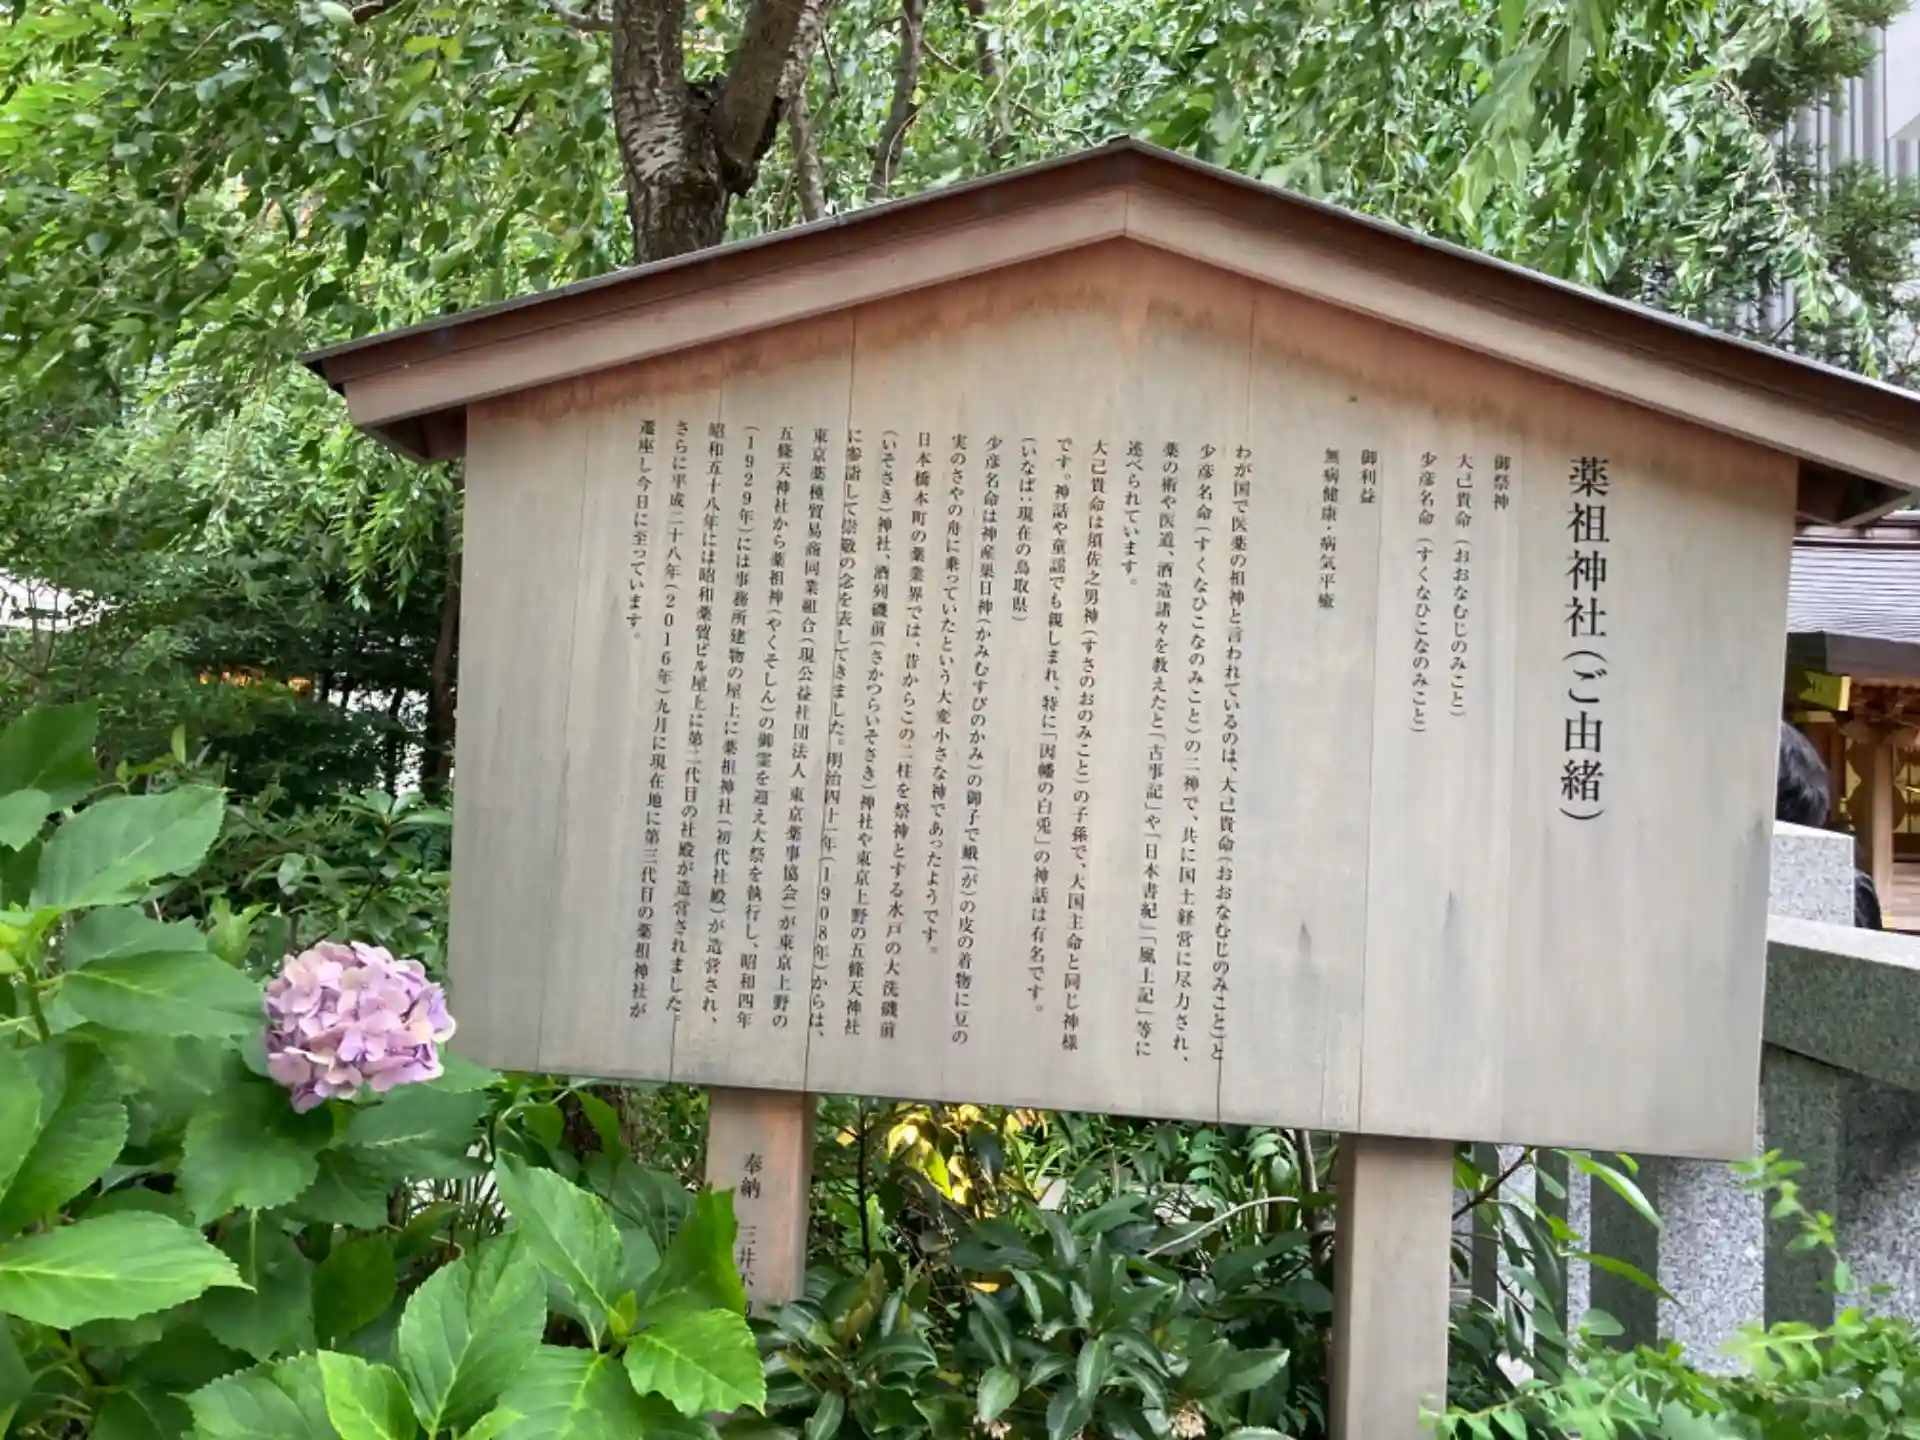 薬祖神社(ご由緒)
御祭神
大己貴命(おおなむじのみこと)
少彦名命(すくなひこなのみこと)
御利益
無病健康・病気平癒
わが国で医薬の祖神と言われているのは、大己貴命(おおなむじのみこと)と
少彦名命(すくなひこなのみこと)の二神で、共に国土経営に尽力され、
薬の術や医道、酒造諸々を教えたと「古事記」や「日本書紀」「風土記」等に
述べられています。
大己貴命は須佐之男神(すさのおのみこと)の子孫で、大国主命と同じ神様
です。神話や童謡でも親しまれ、特に「因幡の白兎」の神話は有名です。
(いなば:現在の鳥取県)
少彦名命は神産巣日神(かみむすびのかみ)の御子で蛾(が)の皮の着物に豆の
実のさやの舟に乗っていたという大変小さな神であったようです。
日本橋本町の薬業界では、昔からこの二柱を祭神とする水戸の大洗磯前
(いそさき)神社、酒列磯前(さかつらいそさき)神社や東京上野の五條天神社
に参詣して崇敬の念を表してきました。明治四十一年(1908年)からは、
東京薬種貿易商同業組合(現公益社団法人東京薬事協会)が東京上野の
五條天神社から薬祖神(やくそしん)の御霊を迎え大祭を執行し、昭和四年
(1929年)には事務所建物の屋上に薬祖神社(初代社殿)が造営され、
昭和五十八年には昭和薬貿ビル屋上に第二代目の社殿が造営されました。
さらに平成二十八年(2016年)九月に現在地に第三代目の薬祖神社が
遷座し今日に至っています。
奉納 三井不